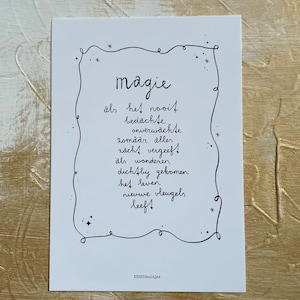 magie
als het nooit
bedachte
onverwachte
zomaar alles
zacht vergeeft
als wonderen
dichtbij gekomen
het leven
nieuwe vleugels
geeft